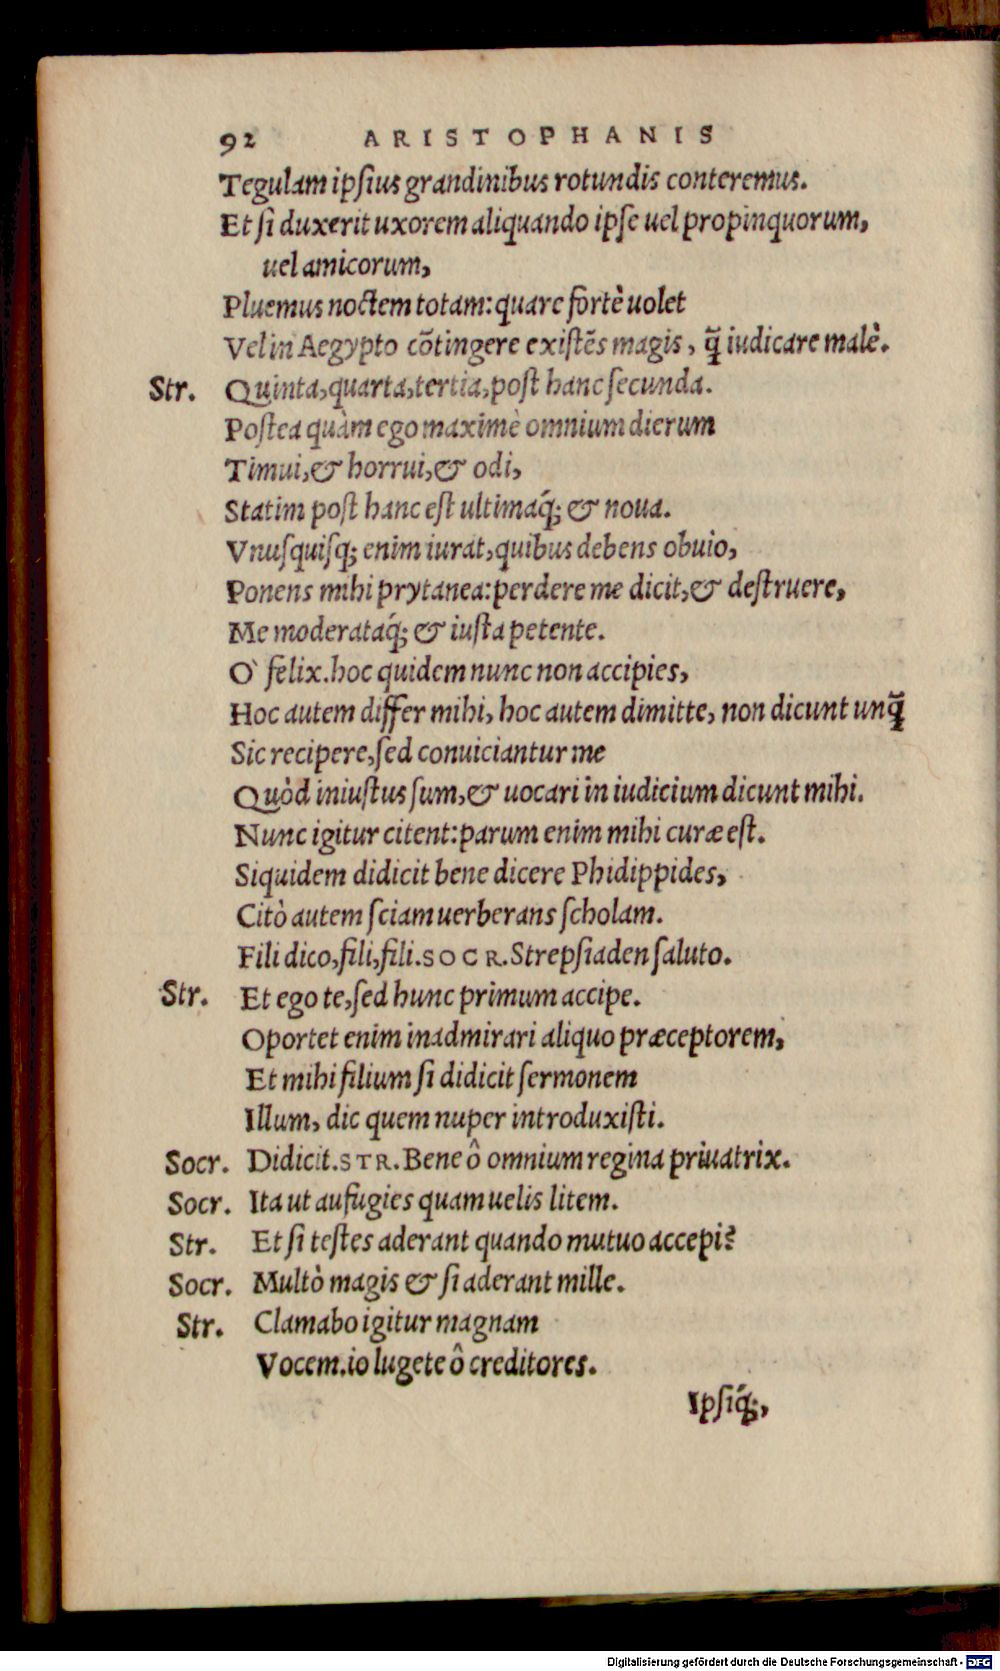 92 ARISTOPHANIS
Tegulam ipſius grandinibus rotundis conteremus.
Et ſi duxerit uxorem aliquando ipſe uel propinquorum,
uel amicorum,
Pluemus noctem totam: quare fortè uolet
Vel in Aegypto cõtingere exiſtẽs magis, q̃ iudicare malè.
Str. Quinta, quarta, tertia, poſt hanc ſecunda.
Poſtea quàm ego maximè omnium dierum
Timui, & horrui, & odi,
Statim poſt hanc eſt ultimaq́; & noua.
Vnuſquiſq; enim iurat, quibus debens obuio,
Ponens mihi prytanea: perdere me dicit, & deſtruere,
Me moderataq́; & iuſta petente.
O` felix. hoc quidem nunc non accipies,
Hoc autem differ mihi, hoc autem dimitte, non dicunt unq̃
Sic recipere, ſed conuiciantur me
Quòd iniuſtus ſum, & uocari in iudicium dicunt mihi.
Nunc igitur citent: parum enim mihi curæ eſt.
Siquidem didicit bene dicere Phidippides,
Citò autem ſciam uerberans ſcholam.
Fili dico, fili, fili. SOCR. Strepſiaden ſaluto.
Str. Et ego te, ſed hunc primum accipe.
Oportet enim inadmirari aliquo præceptorem,
Et mihi filium ſi didicit ſermonem
Illum, dic quem nuper introduxiſti.
Socr. Didicit. STR. Bene ô omnium regina priuatrix.
Socr. Ita ut aufugies quam uelis litem.
Str. Et ſi teſtes aderant quando mutuo accepi?
Socr. Multò magis & ſi aderant mille.
Str. Clamabo igitur magnam
Vocem. io lugete ô creditores.
Ipſiq́;,
Digitalisierung gefördert durch die Deutsche Forschungsgemeinschaft - DFG